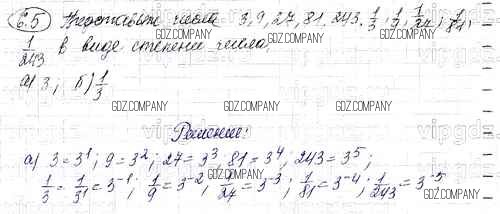 6.5 Представьте числа 3, 9, 27, 81, 243, 1/3; 1/9; 1/27; 1/81;
1/243 в виде степени числа:
а) 3; б) 1/3
GDZ.COMPANY
Решение:
а) 3 = 3¹; 9 = 3²; 27 = 3³, 81 = 3⁴, 243 = 3⁵;
1/3 = 1/3¹ = 3⁻¹; 1/9 = 3⁻², 1/27 = 3⁻³; 1/81 = 3⁻⁴; 1/243 = 3⁻⁵